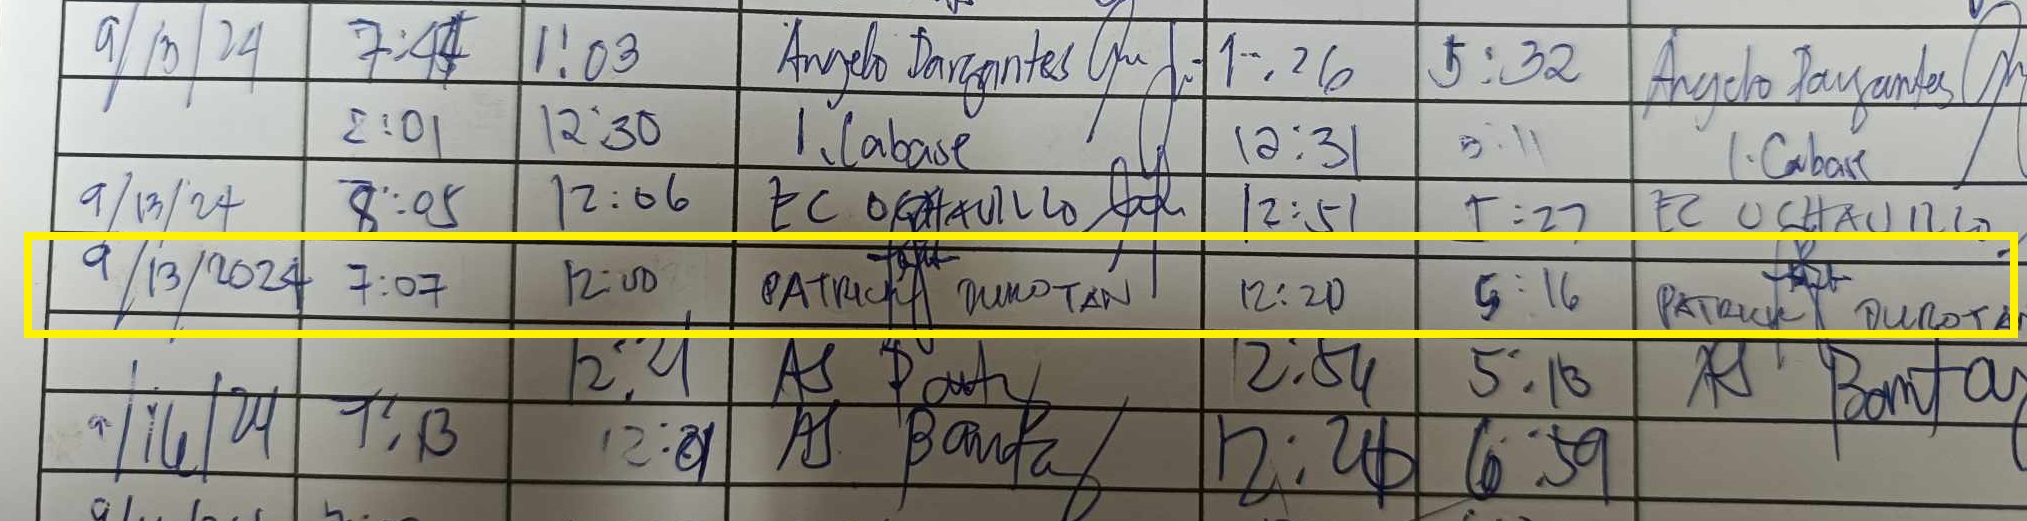 9/13/24 7:44 1:03 Angelo Dargantes 1:26 5:32 Angelo Dargantes
2:01 12:30 I. Cabase 12:31 5:11 I. Cabase
9/13/24 8:05 12:06 EC OCHAVILLO 12:51 5:27 EC OCHAVILLO
9/13/2024 7:07 12:00 PATRICK DUROTAN 12:20 5:16 PATRICK DUROTAN
12:21 AS Bantay 12:54 5:13 AS Bantay
9/16/24 7:13 12:21 AS Bantay 12:26 6:59